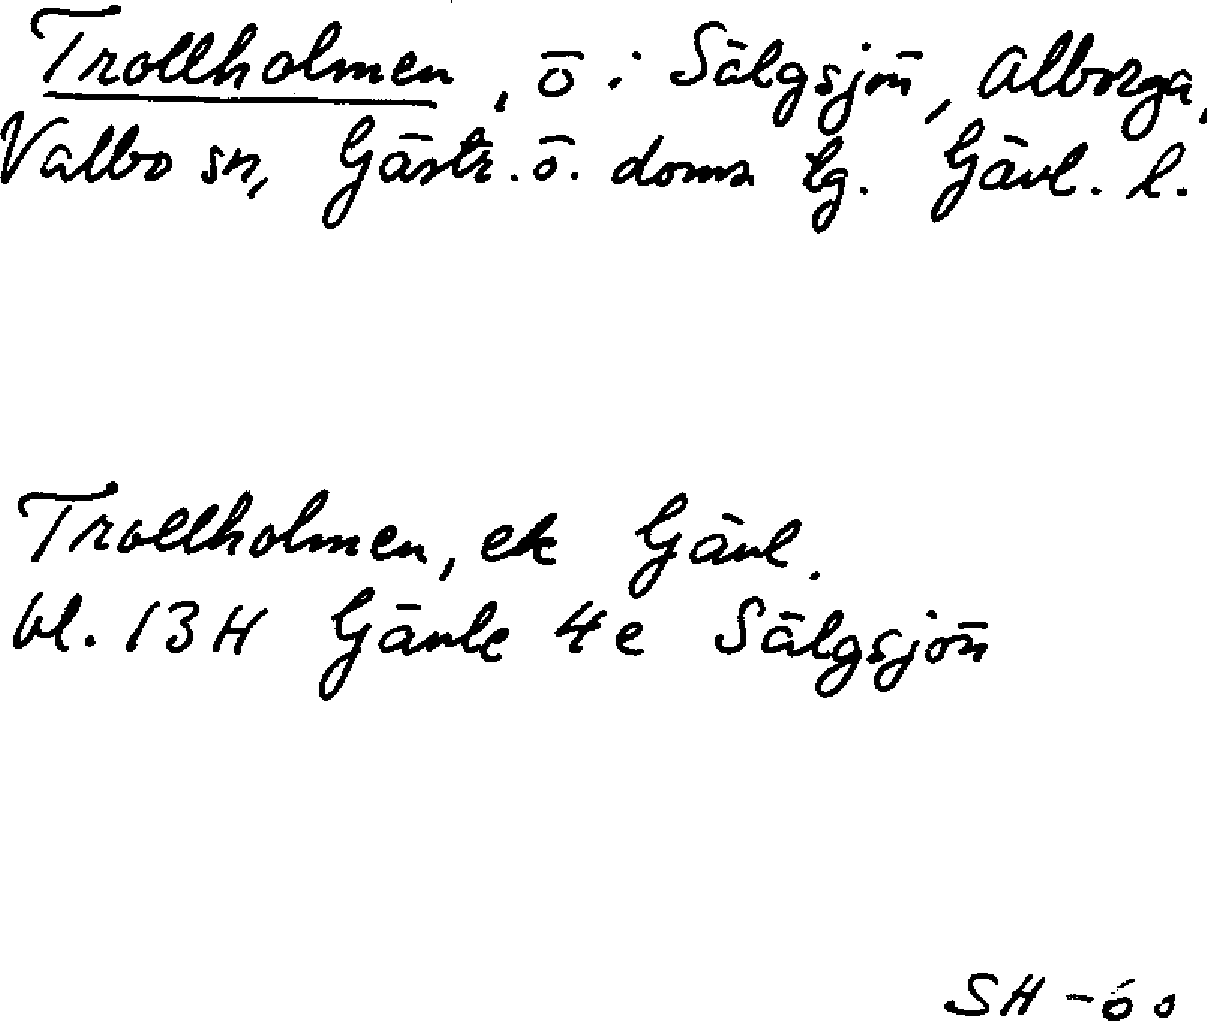 Trollholmen, ö i Sälgsjön, Alborga,
Valbo sn, Gästr. ö. doms lg. Gävl. l.
Trollholmen, ek Gävl.
bl. 13H Gävle 4e Sälgsjön
SH -60